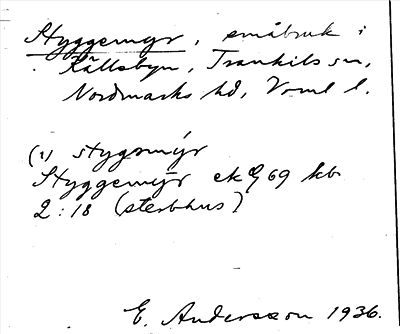 Styggemyr, småbruk i
Källsbyn, Trankils sn,
Nordmarks hd, Vrml l.
(1) stygomýr
Styggemyr ek 69 kb
2:18 (sterbhus)
E. Andersson 1936.